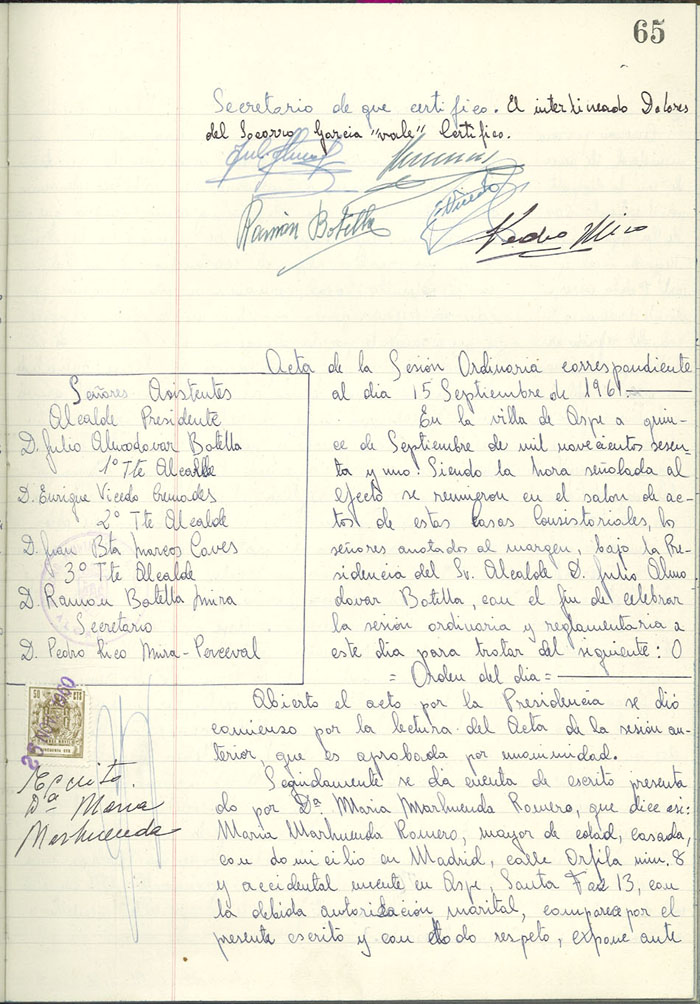 65
Secretario de que certifico. El interlineado Dolores
del Socorro Garcia "vale" Certifico.
Ramón Botella
E Vicedo
Pedro Rico
Acta de la Sesión Ordinaria correspondiente
al dia 15 Septiembre de 1961.
Señores Asistentes
Alcalde Presidente
D. Julio Almodovar Botella
1º Tte Alcalde
D. Enrique Vicedo Cremades
2º Tte Alcalde
D. Juan Bta Marcos Caves
3º Tte Alcalde
D. Ramón Botella Mira
Secretario
D. Pedro Rico Mira-Perceval
En la villa de Aspe a quin-
ce de Septiembre de mil novecientos sesen-
ta y uno. Siendo la hora señalada al
efecto se reunieron en el salon de ac-
tos de estas Casas Consistoriales, los
señores anotados al margen, bajo la Pre-
sidencia del Sr. Alcalde D. Julio Almo-
dovar Botella, con el fin de celebrar
la sesión ordinaria y reglamentaria a
este dia para tratar del siguiente: O
= Orden del dia =
Abierto el acto por la Presidencia se dió
comienzo por la lectura del Acta de la sesión an-
terior, que es aprobada por unanimidad.
50 CTS
Escrito
Dª Maria
Marhuenda
Seguidamente se da cuenta de escrito presenta
do por Dª Maria Marhuenda Romero, que dice asi:
Maria Marhuenda Romero, mayor de edad, casada,
con domicilio en Madrid, calle Orfila núm. 8
y accidentalmente en Aspe, Santa Faz 13, con
la debida autorización marital, comparece por el
presente escrito y con todo respeto, expone ante